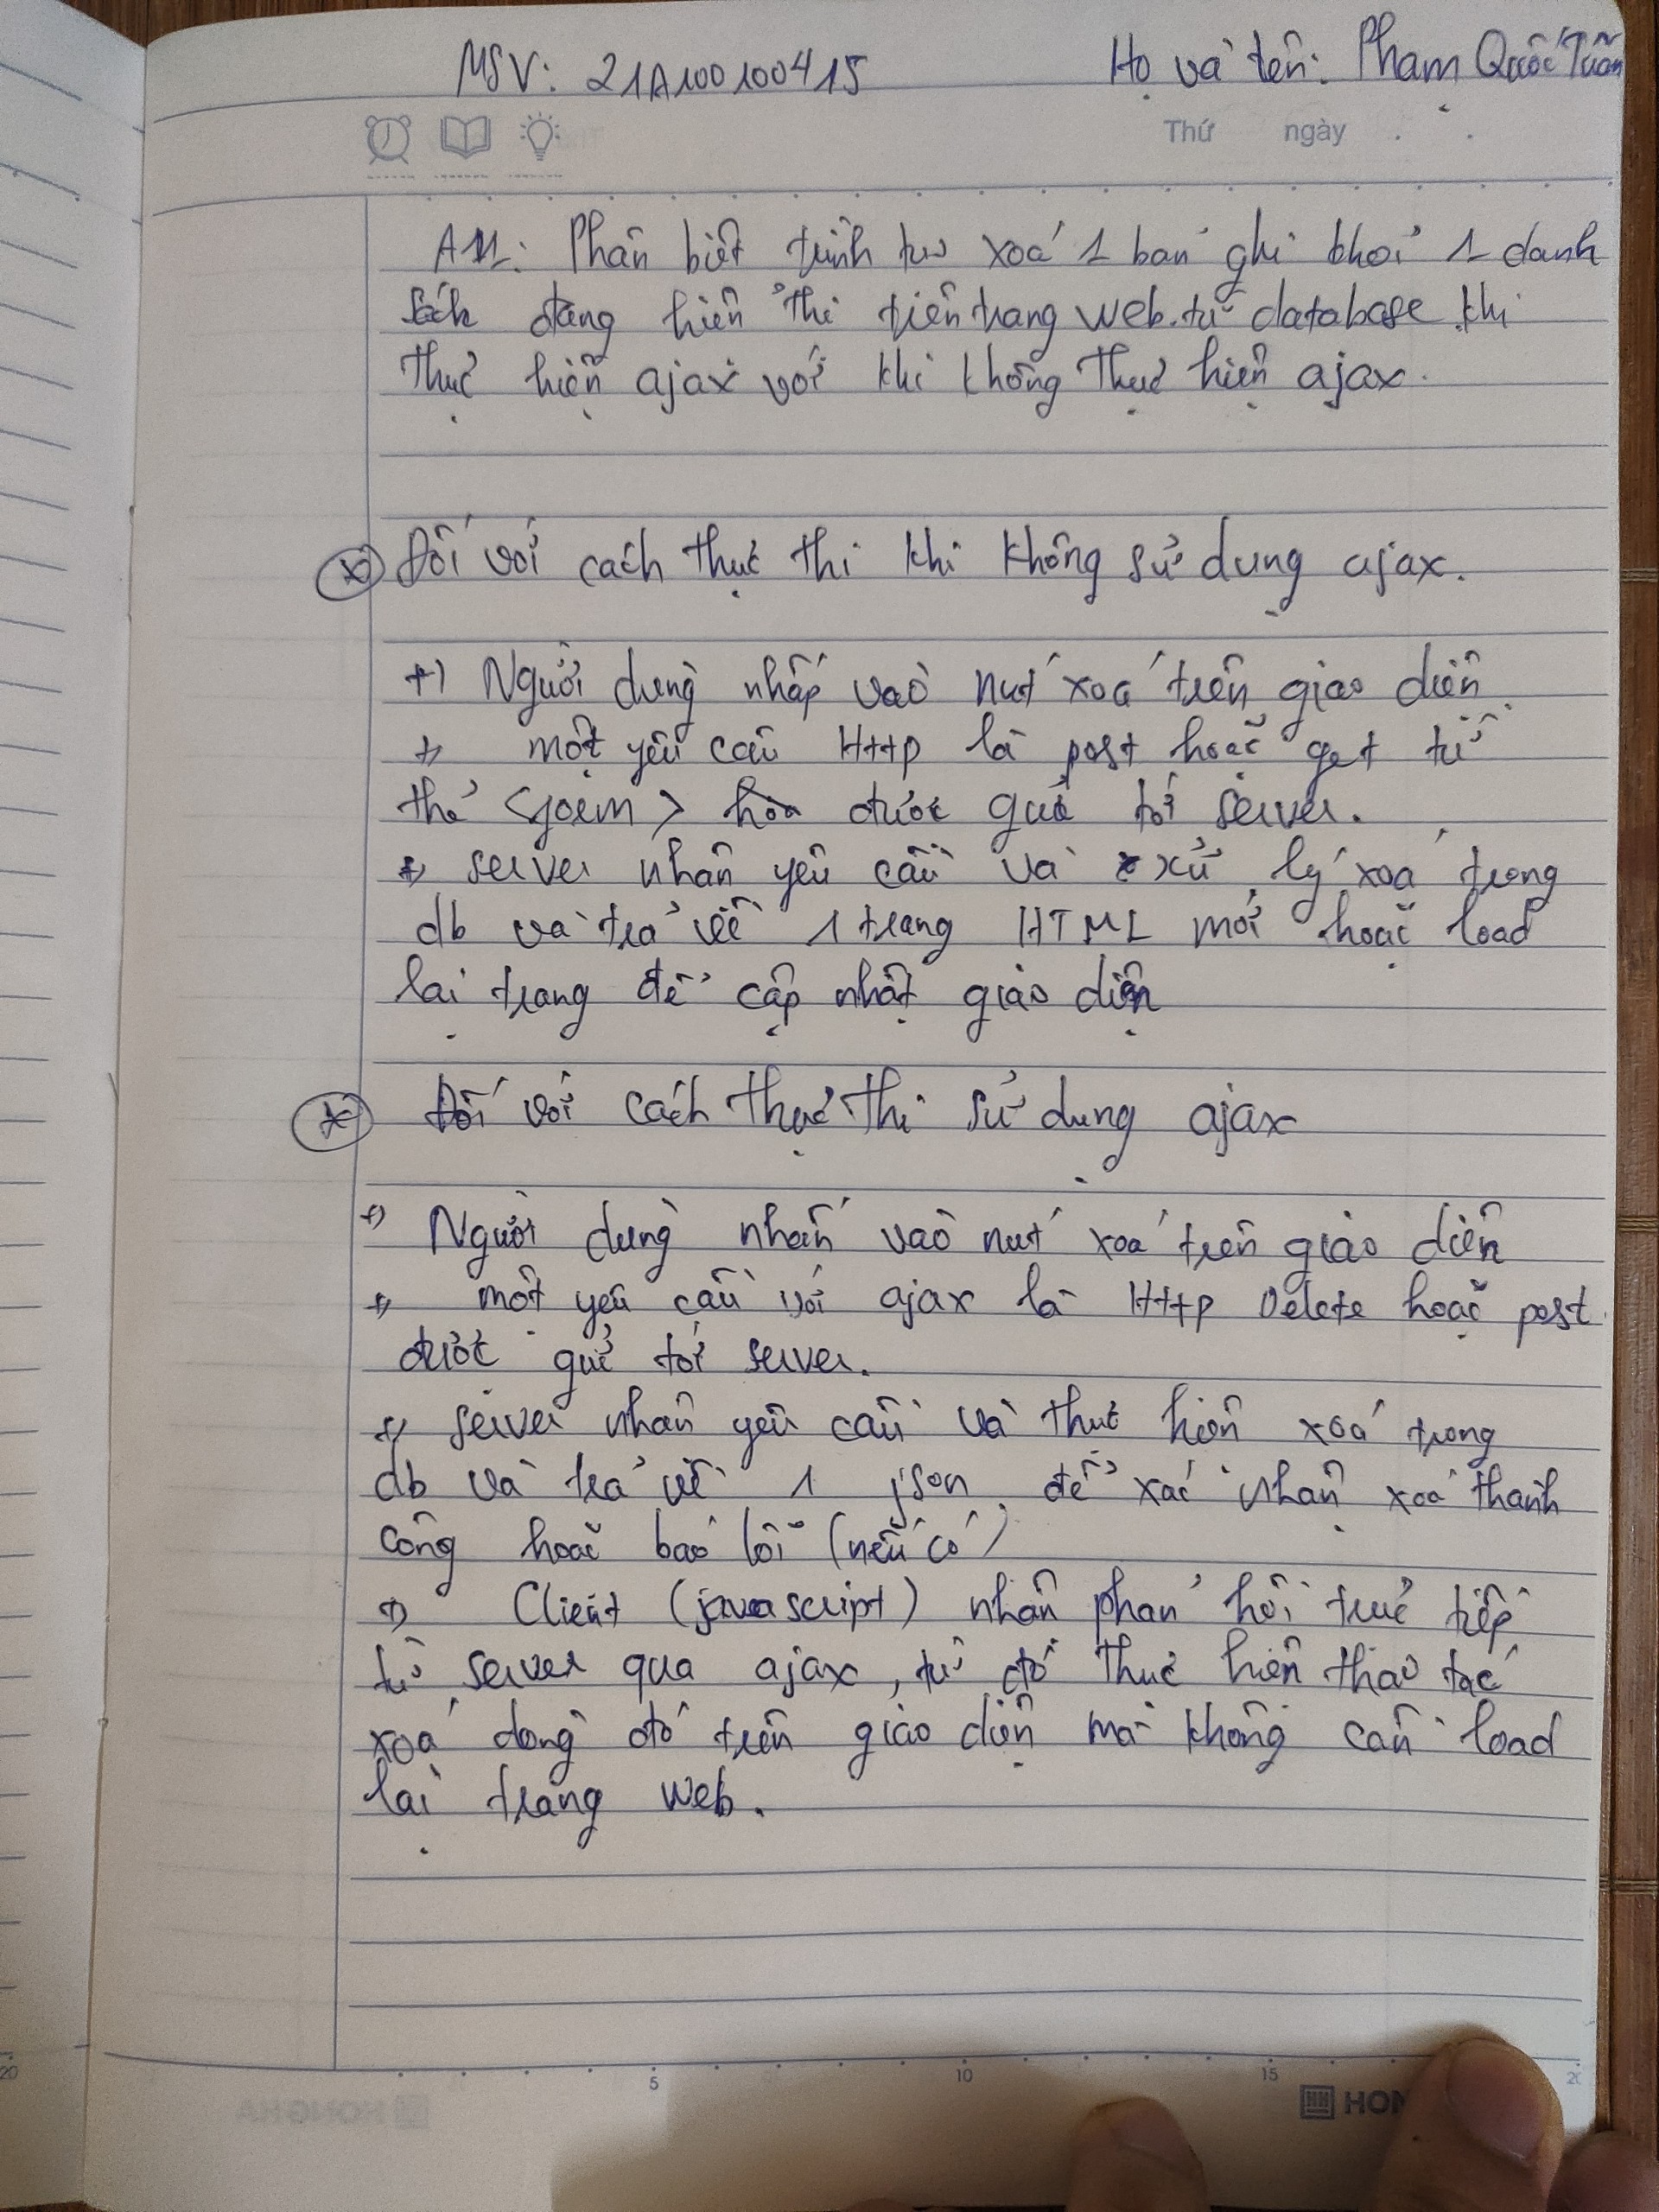 MSV: 21A100100415 Họ và tên: Phạm Quốc Tuấn
Thứ ngày
Phân biệt trình tự xoá 1 bản ghi khỏi 1 danh
sách đang hiển thị trên trang web từ database khi
thực hiện ajax với khi không thực hiện ajax.
Đối với cách thực thi khi không sử dụng ajax.
+) Người dùng nhấp vào nút xoá trên giao diện.
+) một yêu cầu Http là post hoặc get từ
thẻ <form> được gửi tới server.
+) server nhận yêu cầu và xử lý xoá trong
db và trả về 1 trang HTML mới hoặc load
lại trang để cập nhật giao diện
Đối với cách thực thi sử dụng ajax
+) Người dùng nhấn vào nút xoá trên giao diện
+) một yêu cầu với ajax là Http Delete hoặc post
được gửi tới server.
+) server nhận yêu cầu và thực hiện xoá trong
db và trả về 1 json để xác nhận xoá thành
công hoặc báo lỗi (nếu có)
+) Client (javascript) nhận phản hồi trực tiếp
từ server qua ajax, từ đó thực hiện thao tác
xoá dòng đó trên giao diện mà không cần load
lại trang web.
5 10 15 20